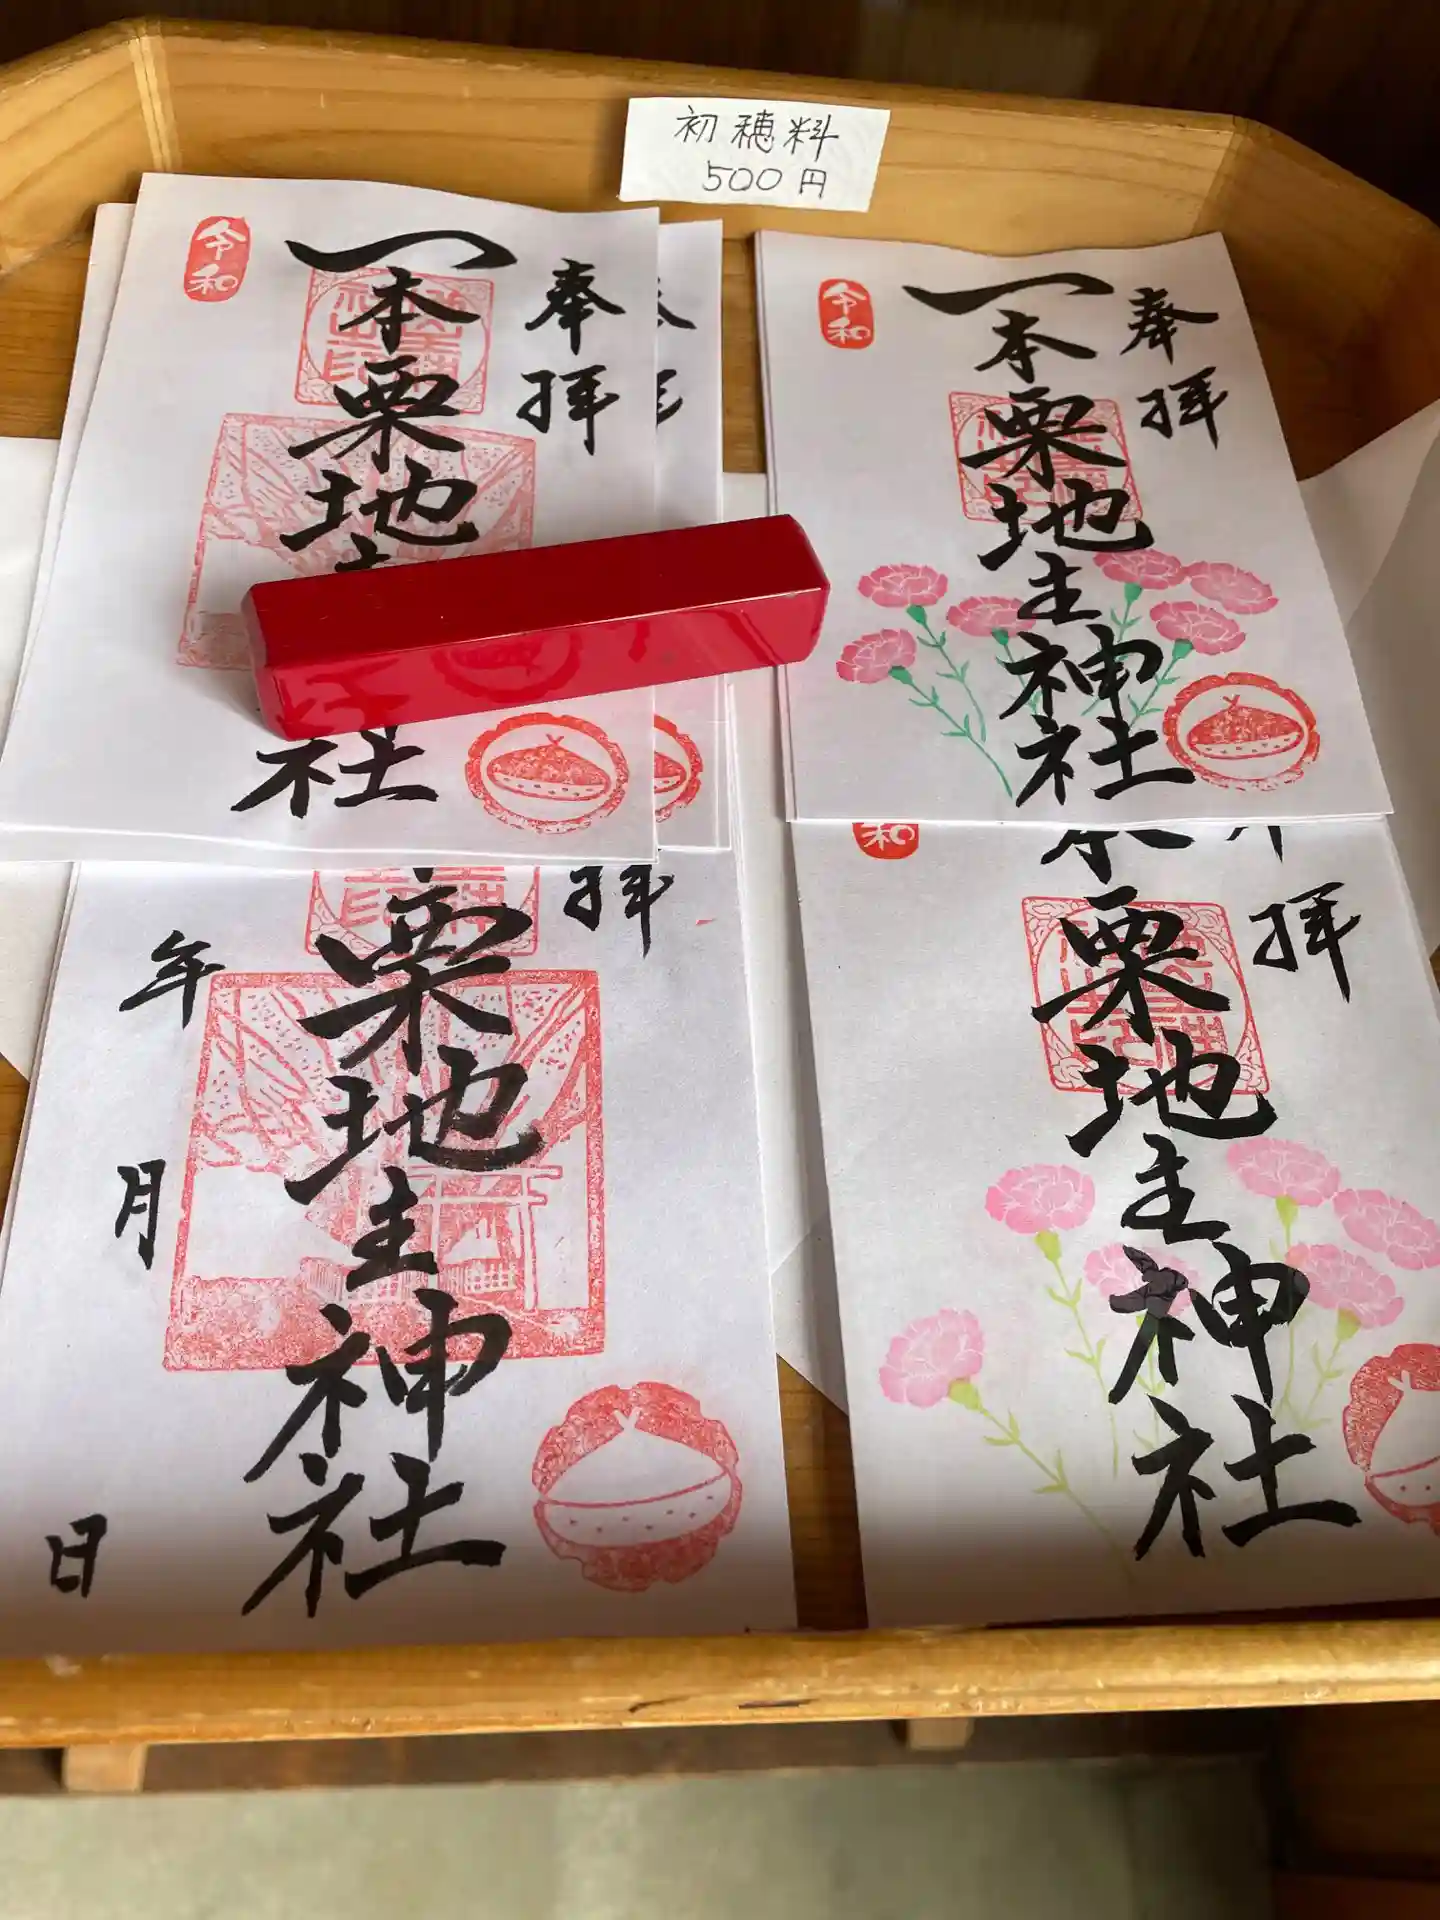 初穂料
500円
令和
奉拝
一本栗地
社
令和
奉拝
一本栗地主神社
拝
栗地主神社
年
月
日
和
拝
本栗地主神社